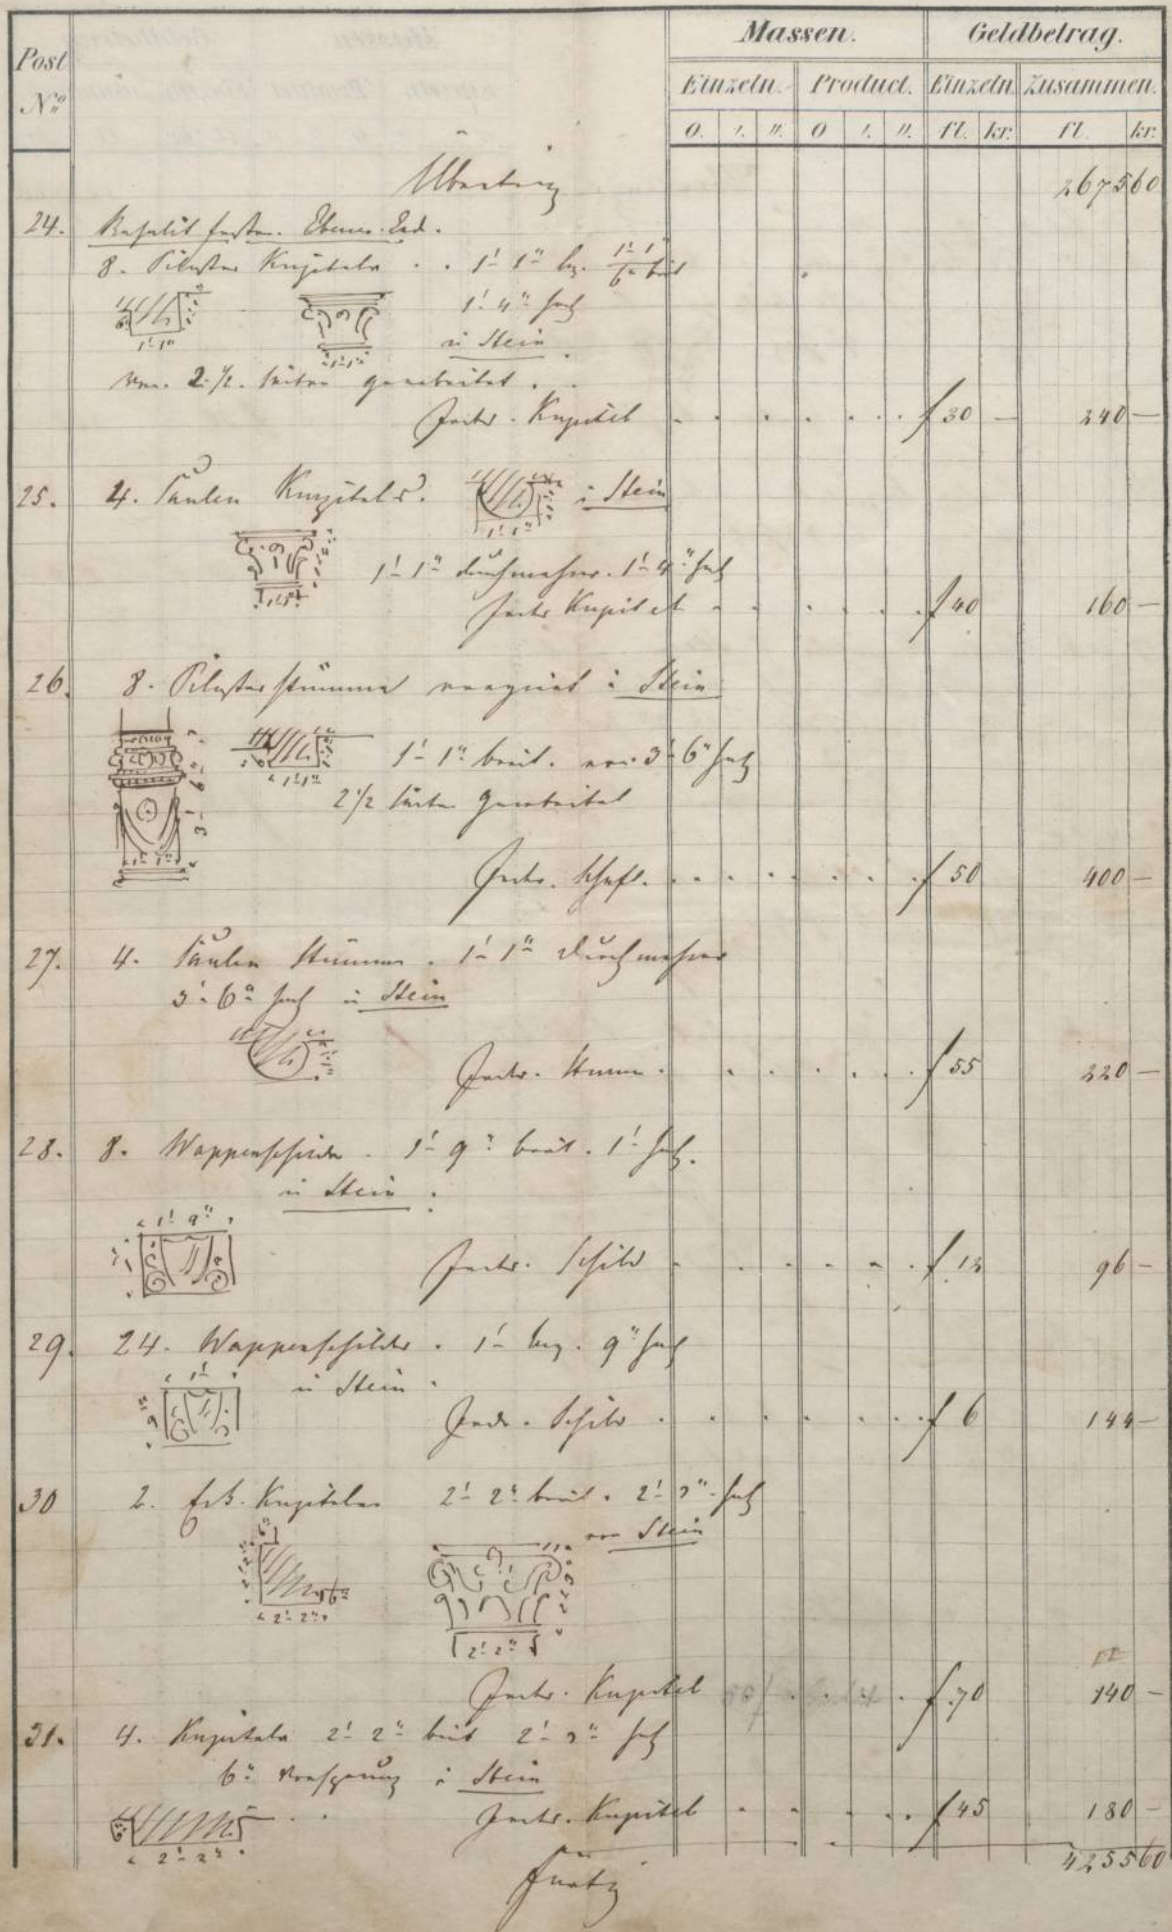 Post
No
Massen.
Geldbetrag.
Einzeln.
Product.
Einzeln
Zusammen.
0. '. ". 0 '. ". fl. kr. fl. kr.
Übertrag 2675 60
24.
8. Pilaster Kapitäle . . 1' 1" lg. 1' 1" 6" breit
1' 4" hoch
in Stein
1' 1"
1' 1"
von 2 1/2 Seiten gearbeitet . .
Jedes Kapitäl f 30 — 240 —
25. 4. Säulen Kapitäls. in Stein
1' 1"
1' 1" Durchmesser. 1' 4" hoch
Jedes Kapitäl f 40 160 —
26. 8. Pilasterstämme verziert in Stein
1' 1" breit. 3' 6" hoch
1' 1"
2 1/2 Seiten gearbeitet
3' 6"
1' 1"
Jeder Schaft. f 50 400 —
27. 4. Säulen Stämme . 1' 1" Durchmesser
3' 6" hoch in Stein
Jeder Stamm . f 55 220 —
28. 8. Wappenschilder . 1' 9" breit. 1' hoch.
in Stein .
1' 9"
Jeder Schild f 12 96 —
29. 24. Wappenschilder . 1' lg. 9" hoch
1'
in Stein .
9"
Jeder Schild . f 6 144 —
30 2. Eck. Kapitäler 2' 2" breit . 2' 3" hoch
von Stein
6"
6"
2' 2"
2' 2"
Jedes Kapitäl f 70 140 —
31. 4. Kapitäle 2' 2" breit 2' 3" hoch
6" Vorsprung in Stein
Jedes Kapitäl f 45 180 —
2' 2"
4255 60
Fürtrag